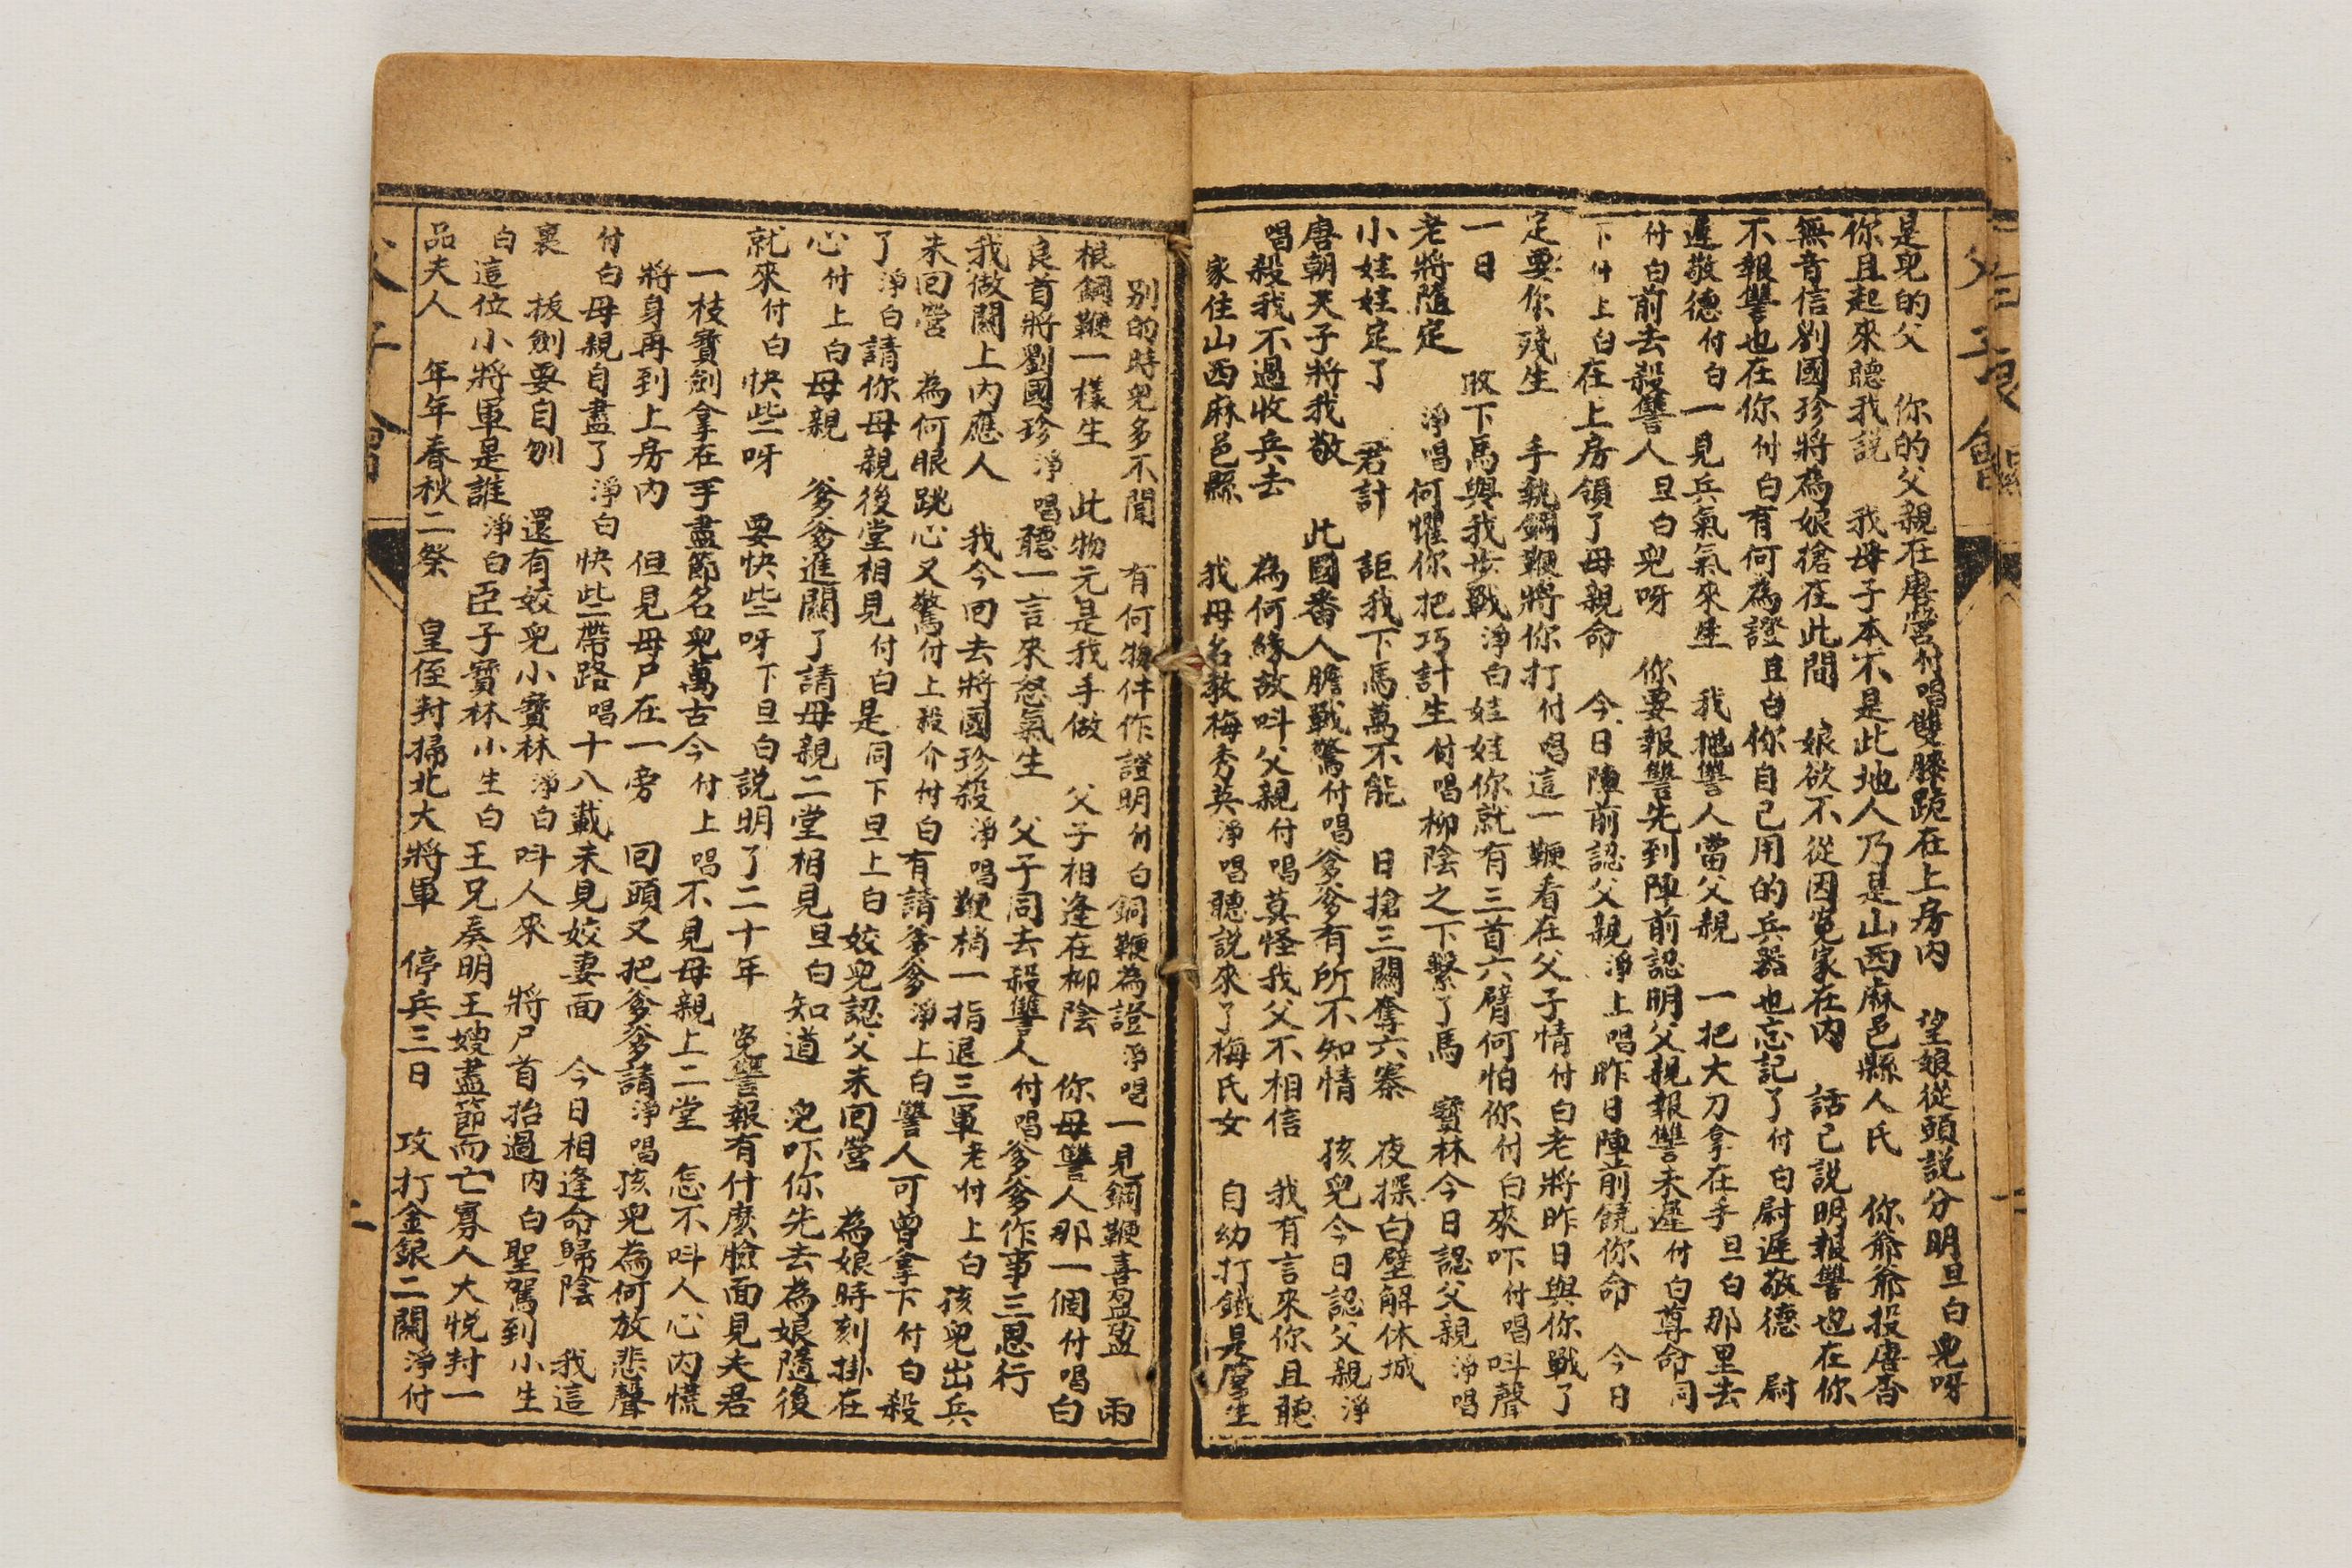 是兒的父　你的父親在唐營付唱雙膝跪在上房内　望娘從頭説分明旦白兒呀
你且起來聽我説　我母子本不是此地人乃是山西麻邑縣人氏　你爺爺投唐否
無音信劉國珍將為娘搶在此間　娘欲不從因冤家在内　話已説明報讐也在你
不報讐也在你付白有何為證旦白你自己用的兵器也忘記了付白尉遲敬德　尉
遲敬德付白一見兵氣氣來生　我把讐人當父親　一把大刀拿在手旦白那里去
付白前去殺讐人旦白兒呀　你要報讐先到陣前認明父親報讐未遲付白尊命同
下付上白在上房領了母親命　今日陣前認父親淨上唱昨日陣前饒你命　今日
定要你殘生　手執鋼鞭將你打付唱這一鞭看在父子情付白老將昨日與你戰了
一日　敗下馬與我步戰淨白娃娃你就有三首六臂何怕你付白來吓付唱呌聲
老將隨定　淨唱何懼你把巧計生付唱柳陰之下繫了馬　寶林今日認父親淨唱
小娃娃定了　君計　誆我下馬萬不能　日搶三關奪六寨　夜探白壁解休城
唐朝天子將我敬　此國番人膽戰驚付唱爹爹有所不知情　孩兒今日認父親淨
唱殺我不過收兵去　為何緣故呌父親付唱莫怪我父不相信　我有言來你且聽
家住山西麻邑縣　我母名教梅秀英淨唱聽説來了梅氏女　自幼打鐵是營生
别的時兒多不聞　有何物件作證明付白銅鞭為證淨唱一見鋼鞭喜盈盈　兩
根鋼鞭一樣生　此物元是我手做　父子相逢在柳陰　你母讐人那一個付唱白
良首將劉國珍淨唱聽一言來怒氣生　父子同去殺讐人付唱爹爹作事三思行
我做關上内應人　我今回去將國珍殺淨唱鞭梢一指退三軍老付上白孩兒出兵
未回營　為何眼跳心又驚付上殺介付白有請爹爹淨上白讐人可曾拿下付白殺
了淨白請你母親後堂相見付白是同下旦上白姣兒認父未回營　為娘時刻掛在
心付上白母親　爹爹進關了請母親二堂相見旦白知道　兒吓你先去為娘隨後
就來付白快些呀　要快些呀下旦白説明了二十年　冤讐報有什麽臉面見夫君
一枝寶劍拿在手盡節名兒萬古今付上唱不見母親上二堂　怎不呌人心内慌
將身再到上房内　但見母尸在一旁　回頭又把爹爹請淨唱孩兒為何放悲聲
付白母親自盡了淨白快些帶路唱十八載未見姣妻面　今日相逢命歸陰　我這
裏　拔劍要自刎　還有姣兒小寶林淨白呌人來　將尸首抬過内白聖駕到小生
白這位小將軍是誰淨白臣子寶林小生白王兄奏明王嫂盡節而亡寡人大悦封一
品夫人　年年春秋二祭　皇侄封掃北大將軍　停兵三日　攻打金銀二關淨付
父子會
二